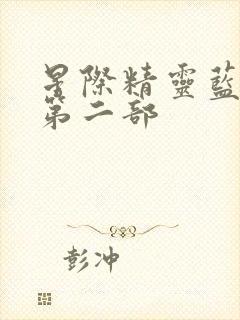 星際精靈藍
第二部
彭冲